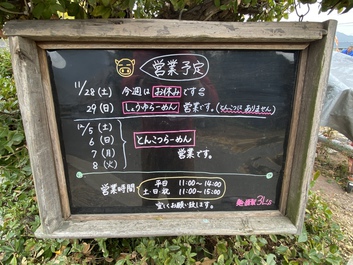 営業予定
11/28(土) 今週はお休みです
29(日) しょうゆらーめん 営業です。(とんこつはありません)
12/5(土)
6(日) とんこつらーめん
7(月) 営業です。
8(火)
営業時間 平日 11:00～14:00
土・日・祝 11:00～15:00
宜しくお願い致します。